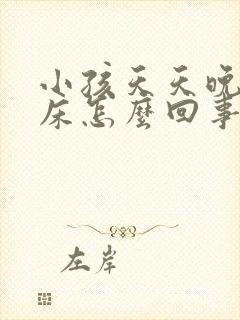 小孩天天晚
床怎麼回事
左岸